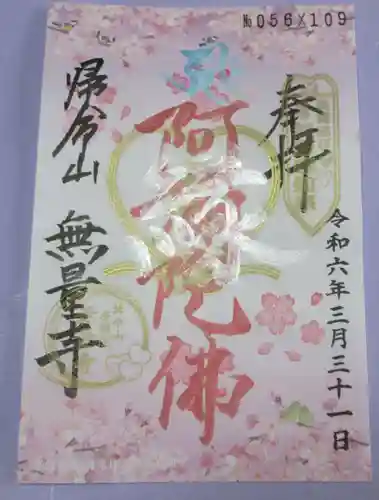 №056X109
奉拝
令和六年三月三十一日
阿弥陀佛
帰命山 無量寺